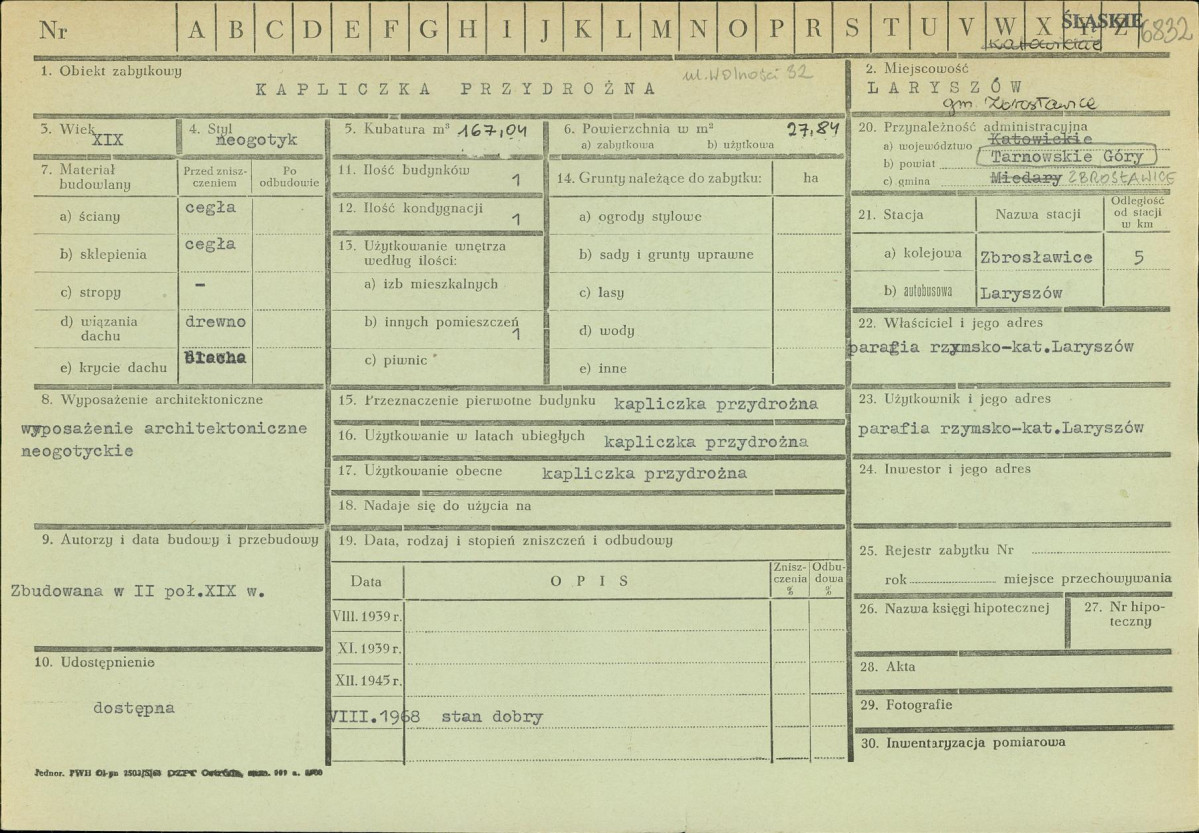 Nr A B C D E F G H I J K L M N O P R S T U V W X Y Z
ŚLĄSKIE
6832
katowickie
1. Obiekt zabytkowy
KAPLICZKA PRZYDROŻNA
ul. Wolności 32
2. Miejscowość
LARYSZÓW
gm. Zbrosławice
3. Wiek
XIX
4. Styl
neogotyk
5. Kubatura m³ 167,04
6. Powierzchnia w m² 27,84
a) zabytkowa b) użytkowa
7. Materiał budowlany
Przed zniszczeniem
Po odbudowie
a) ściany cegła
b) sklepienia cegła
c) stropy –
d) wiązania dachu drewno
e) krycie dachu blacha
8. Wyposażenie architektoniczne
wyposażenie architektoniczne
neogotyckie
9. Autorzy i data budowy i przebudowy
Zbudowana w II poł.XIX w.
10. Udostępnienie
dostępna
11. Ilość budynków 1
12. Ilość kondygnacji 1
13. Użytkowanie wnętrza
według ilości:
a) izb mieszkalnych
b) innych pomieszczeń 1
c) piwnic
14. Grunty należące do zabytku: ha
a) ogrody stylowe
b) sady i grunty uprawne
c) lasy
d) wody
e) inne
15. Przeznaczenie pierwotne budynku kapliczka przydrożna
16. Użytkowanie w latach ubiegłych kapliczka przydrożna
17. Użytkowanie obecne kapliczka przydrożna
18. Nadaje się do użycia na
19. Data, rodzaj i stopień zniszczeń i odbudowy
Data
OPIS
Zniszczenia %
Odbudowa %
VIII. 1939 r.
XI. 1939 r.
XII. 1945 r.
VIII.1968 stan dobry
20. Przynależność administracyjna
a) województwo Katowickie
b) powiat Tarnowskie Góry
c) gmina Miedary ZBROSŁAWICE
21. Stacja
Nazwa stacji
Odległość
od stacji
w km
a) kolejowa Zbrosławice 5
b) autobusowa Laryszów
22. Właściciel i jego adres
parafia rzymsko-kat.Laryszów
23. Użytkownik i jego adres
parafia rzymsko-kat.Laryszów
24. Inwestor i jego adres
25. Rejestr zabytku Nr
rok miejsce przechowywania
26. Nazwa księgi hipotecznej
27. Nr hipoteczny
28. Akta
29. Fotografie
30. Inwentaryzacja pomiarowa